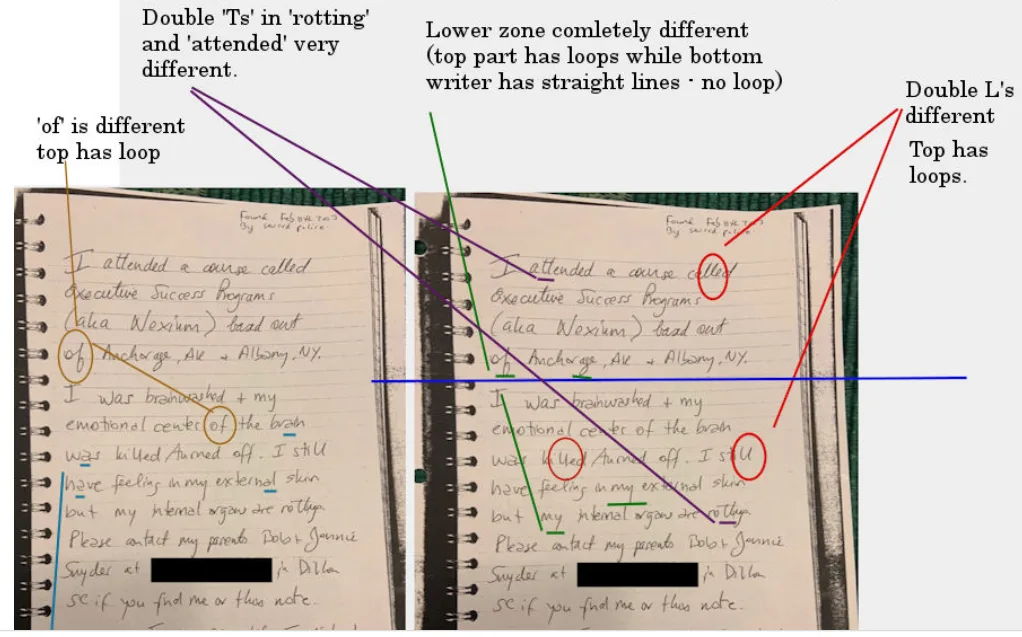 Double 'Ts' in 'rotting'
and 'attended' very
different.
Lower zone comletely different
(top part has loops while bottom
writer has straight lines - no loop)
Double L's
different
Top has
loops.
'of' is different
top has loop
Found Feb
By police
I attended a course called
Executive Success Programs
(aka Nexium) basd out
of Anchorage, AK + Albany, NY.
I was brainwashed + my
emotional center of the brain
was killed/turned off. I still
have feeling in my external skin
but my internal organs are rotting.
Please contact my parents Bob + Jonnie
Snyder at in Dillon
SC if you find me or this note.
Found Feb
By police
I attended a course called
Executive Success Programs
(aka Nexium) basd out
of Anchorage, AK + Albany, NY.
I was brainwashed + my
emotional center of the brain
was killed/turned off. I still
have feeling in my external skin
but my internal organs are rotting.
Please contact my parents Bob + Jonnie
Snyder at in Dillon
SC if you find me or this note.